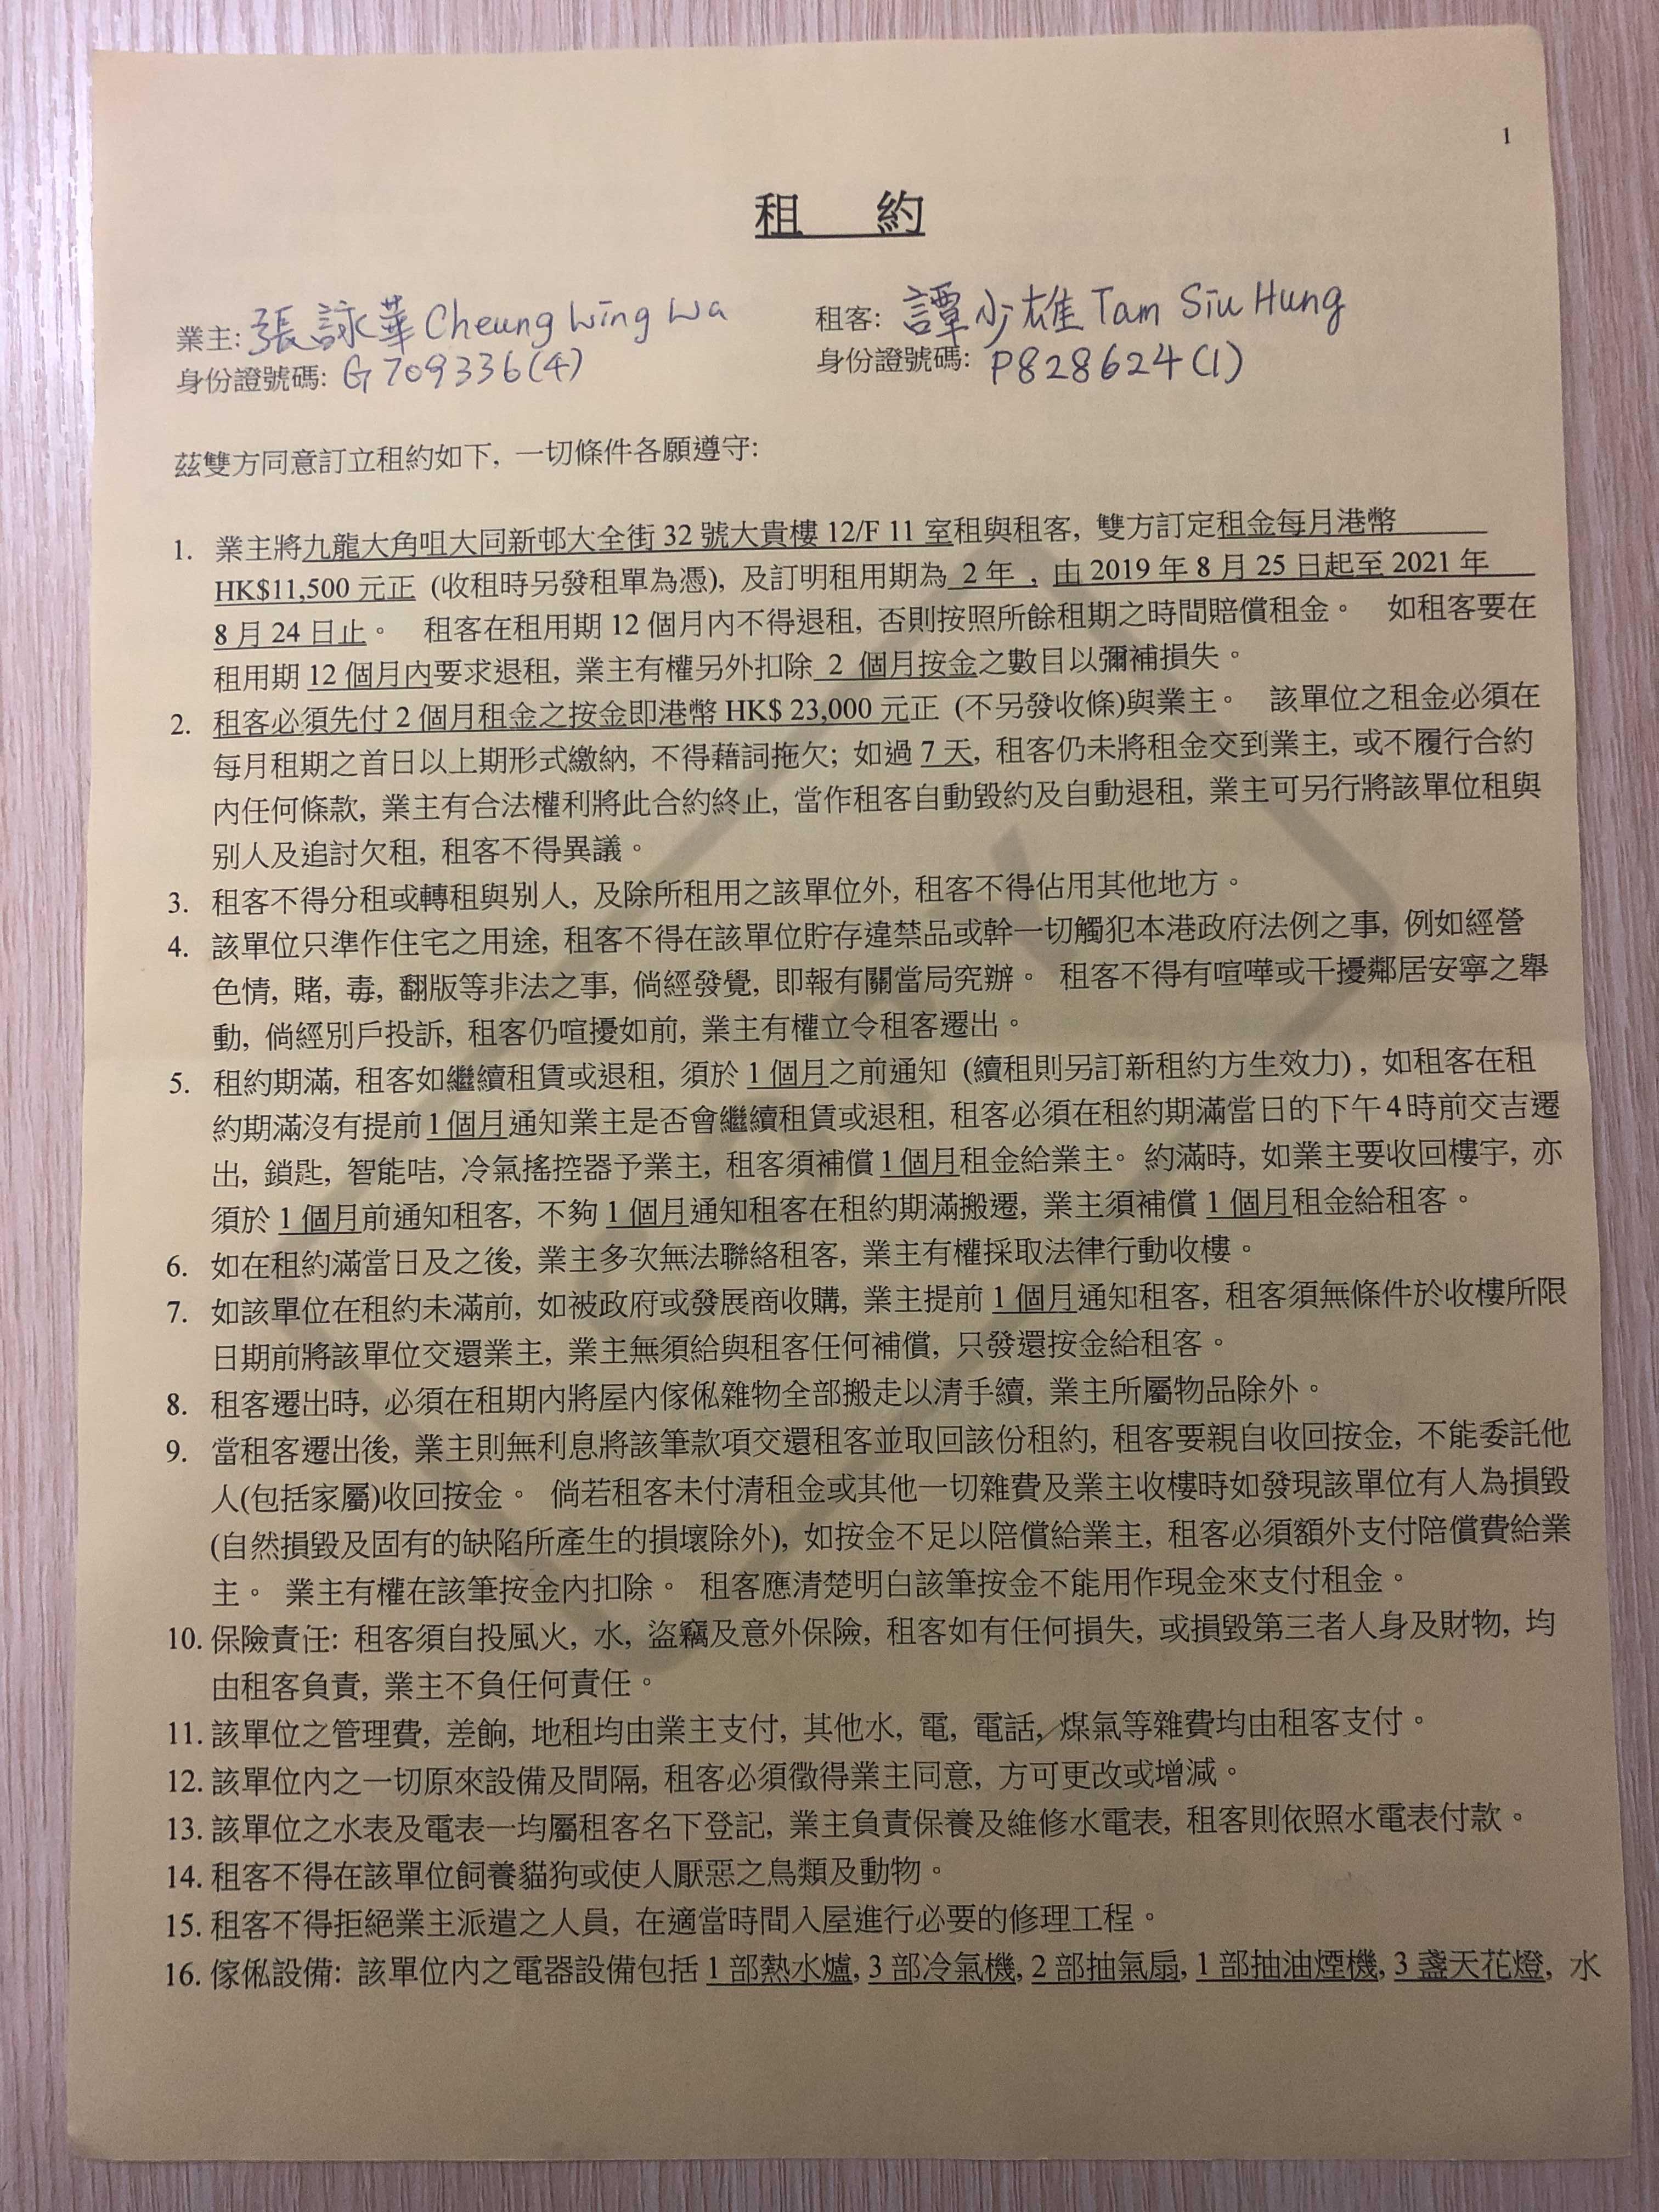 1
租 約
業主: 張詠華 Cheung Wing Wa 租客: 譚少雄 Tam Siu Hung
身份證號碼: G709336(4) 身份證號碼: P828624(1)
茲雙方同意訂立租約如下, 一切條件各願遵守:
1. 業主將九龍大角咀大同新邨大全街 32 號大貴樓 12/F 11 室租與租客, 雙方訂定租金每月港幣
HK$11,500 元正 (收租時另發租單為憑), 及訂明租用期為 2 年 , 由 2019 年 8 月 25 日起至 2021 年
8 月 24 日止。 租客在租用期 12 個月內不得退租, 否則按照所餘租期之時間賠償租金。 如租客要在
租用期 12 個月內要求退租, 業主有權另外扣除 2 個月按金之數目以彌補損失。
2. 租客必須先付 2 個月租金之按金即港幣 HK$ 23,000 元正 (不另發收條)與業主。 該單位之租金必須在
每月租期之首日以上期形式繳納, 不得藉詞拖欠; 如過 7 天, 租客仍未將租金交到業主, 或不履行合約
內任何條款, 業主有合法權利將此合約終止, 當作租客自動毀約及自動退租, 業主可另行將該單位租與
別人及追討欠租, 租客不得異議。
3. 租客不得分租或轉租與別人, 及除所租用之該單位外, 租客不得佔用其他地方。
4. 該單位只準作住宅之用途, 租客不得在該單位貯存違禁品或幹一切觸犯本港政府法例之事, 例如經營
色情, 賭, 毒, 翻版等非法之事, 倘經發覺, 即報有關當局究辦。 租客不得有喧嘩或干擾鄰居安寧之舉
動, 倘經別戶投訴, 租客仍喧擾如前, 業主有權立令租客遷出。
5. 租約期滿, 租客如繼續租賃或退租, 須於 1 個月之前通知 (續租則另訂新租約方生效力) , 如租客在租
約期滿沒有提前 1 個月通知業主是否會繼續租賃或退租, 租客必須在租約期滿當日的下午 4 時前交吉遷
出, 鎖匙, 智能咭, 冷氣搖控器予業主, 租客須補償 1 個月租金給業主。 約滿時, 如業主要收回樓宇, 亦
須於 1 個月前通知租客, 不夠 1 個月通知租客在租約期滿搬遷, 業主須補償 1 個月租金給租客。
6. 如在租約滿當日及之後, 業主多次無法聯絡租客, 業主有權採取法律行動收樓。
7. 如該單位在租約未滿前, 如被政府或發展商收購, 業主提前 1 個月通知租客, 租客須無條件於收樓所限
日期前將該單位交還業主, 業主無須給與租客任何補償, 只發還按金給租客。
8. 租客遷出時, 必須在租期內將屋內傢俬雜物全部搬走以清手續, 業主所屬物品除外。
9. 當租客遷出後, 業主則無利息將該筆款項交還租客並取回該份租約, 租客要親自收回按金, 不能委託他
人(包括家屬)收回按金。 倘若租客未付清租金或其他一切雜費及業主收樓時如發現該單位有人為損毀
(自然損毀及固有的缺陷所產生的損壞除外), 如按金不足以陪償給業主, 租客必須額外支付陪償費給業
主。 業主有權在該筆按金內扣除。 租客應清楚明白該筆按金不能用作現金來支付租金。
10. 保險責任: 租客須自投風火, 水, 盜竊及意外保險, 租客如有任何損失, 或損毀第三者人身及財物, 均
由租客負責, 業主不負任何責任。
11. 該單位之管理費, 差餉, 地租均由業主支付, 其他水, 電, 電話, 煤氣等雜費均由租客支付。
12. 該單位內之一切原來設備及間隔, 租客必須徵得業主同意, 方可更改或增減。
13. 該單位之水表及電表一均屬租客名下登記, 業主負責保養及維修水電表, 租客則依照水電表付款。
14. 租客不得在該單位飼養貓狗或使人厭惡之鳥類及動物。
15. 租客不得拒絕業主派遣之人員, 在適當時間入屋進行必要的修理工程。
16. 傢俬設備: 該單位內之電器設備包括 1 部熱水爐, 3 部冷氣機, 2 部抽氣扇, 1 部抽油煙機, 3 盞天花燈, 水